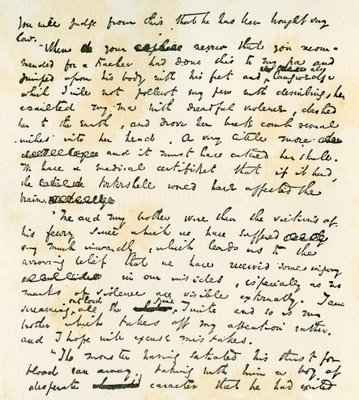 you will judge from this that he has been brought very
low.
"When your nephew that you recom-
mended for a teacher had done this to my pa and
jumped upon his body with his feet and also langwedge
which I will not pollewt my pen with describing, he
assaulted my ma with dreadful violence, dashed
her to the earth, and drove her back comb several
inches into her head. A very little more
and it must have entered her skull.
We have a medical certifiket that if it had,
the tortershell would have affected the
brain.
"Me and my brother were then the victims of
his feury since which we have suffered
very much inwardly, which leads us to the
arrowing belief that we have received some injury
in our insides, especially as no
marks of violence are visible externally. I am
screaming out loud all the time I write and so is my
brother which takes off my attention rather.
and I hope will excuse mistakes.
"The monster having satiated his thirst for
blood ran away, taking with him a boy of
desperate caracter that he had excited